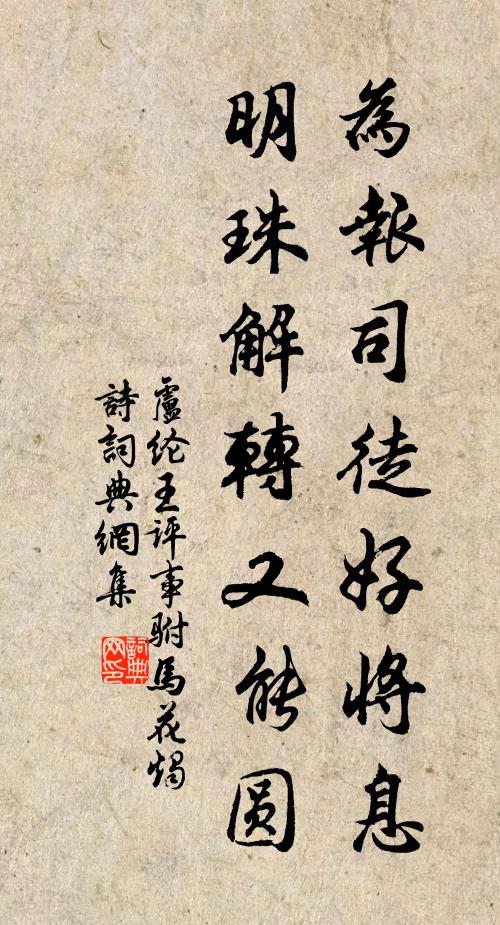 為報司徒好將息
明珠解轉又能圆
盧纶王评事駙馬花燭
詩詞典網集
詞典
网印